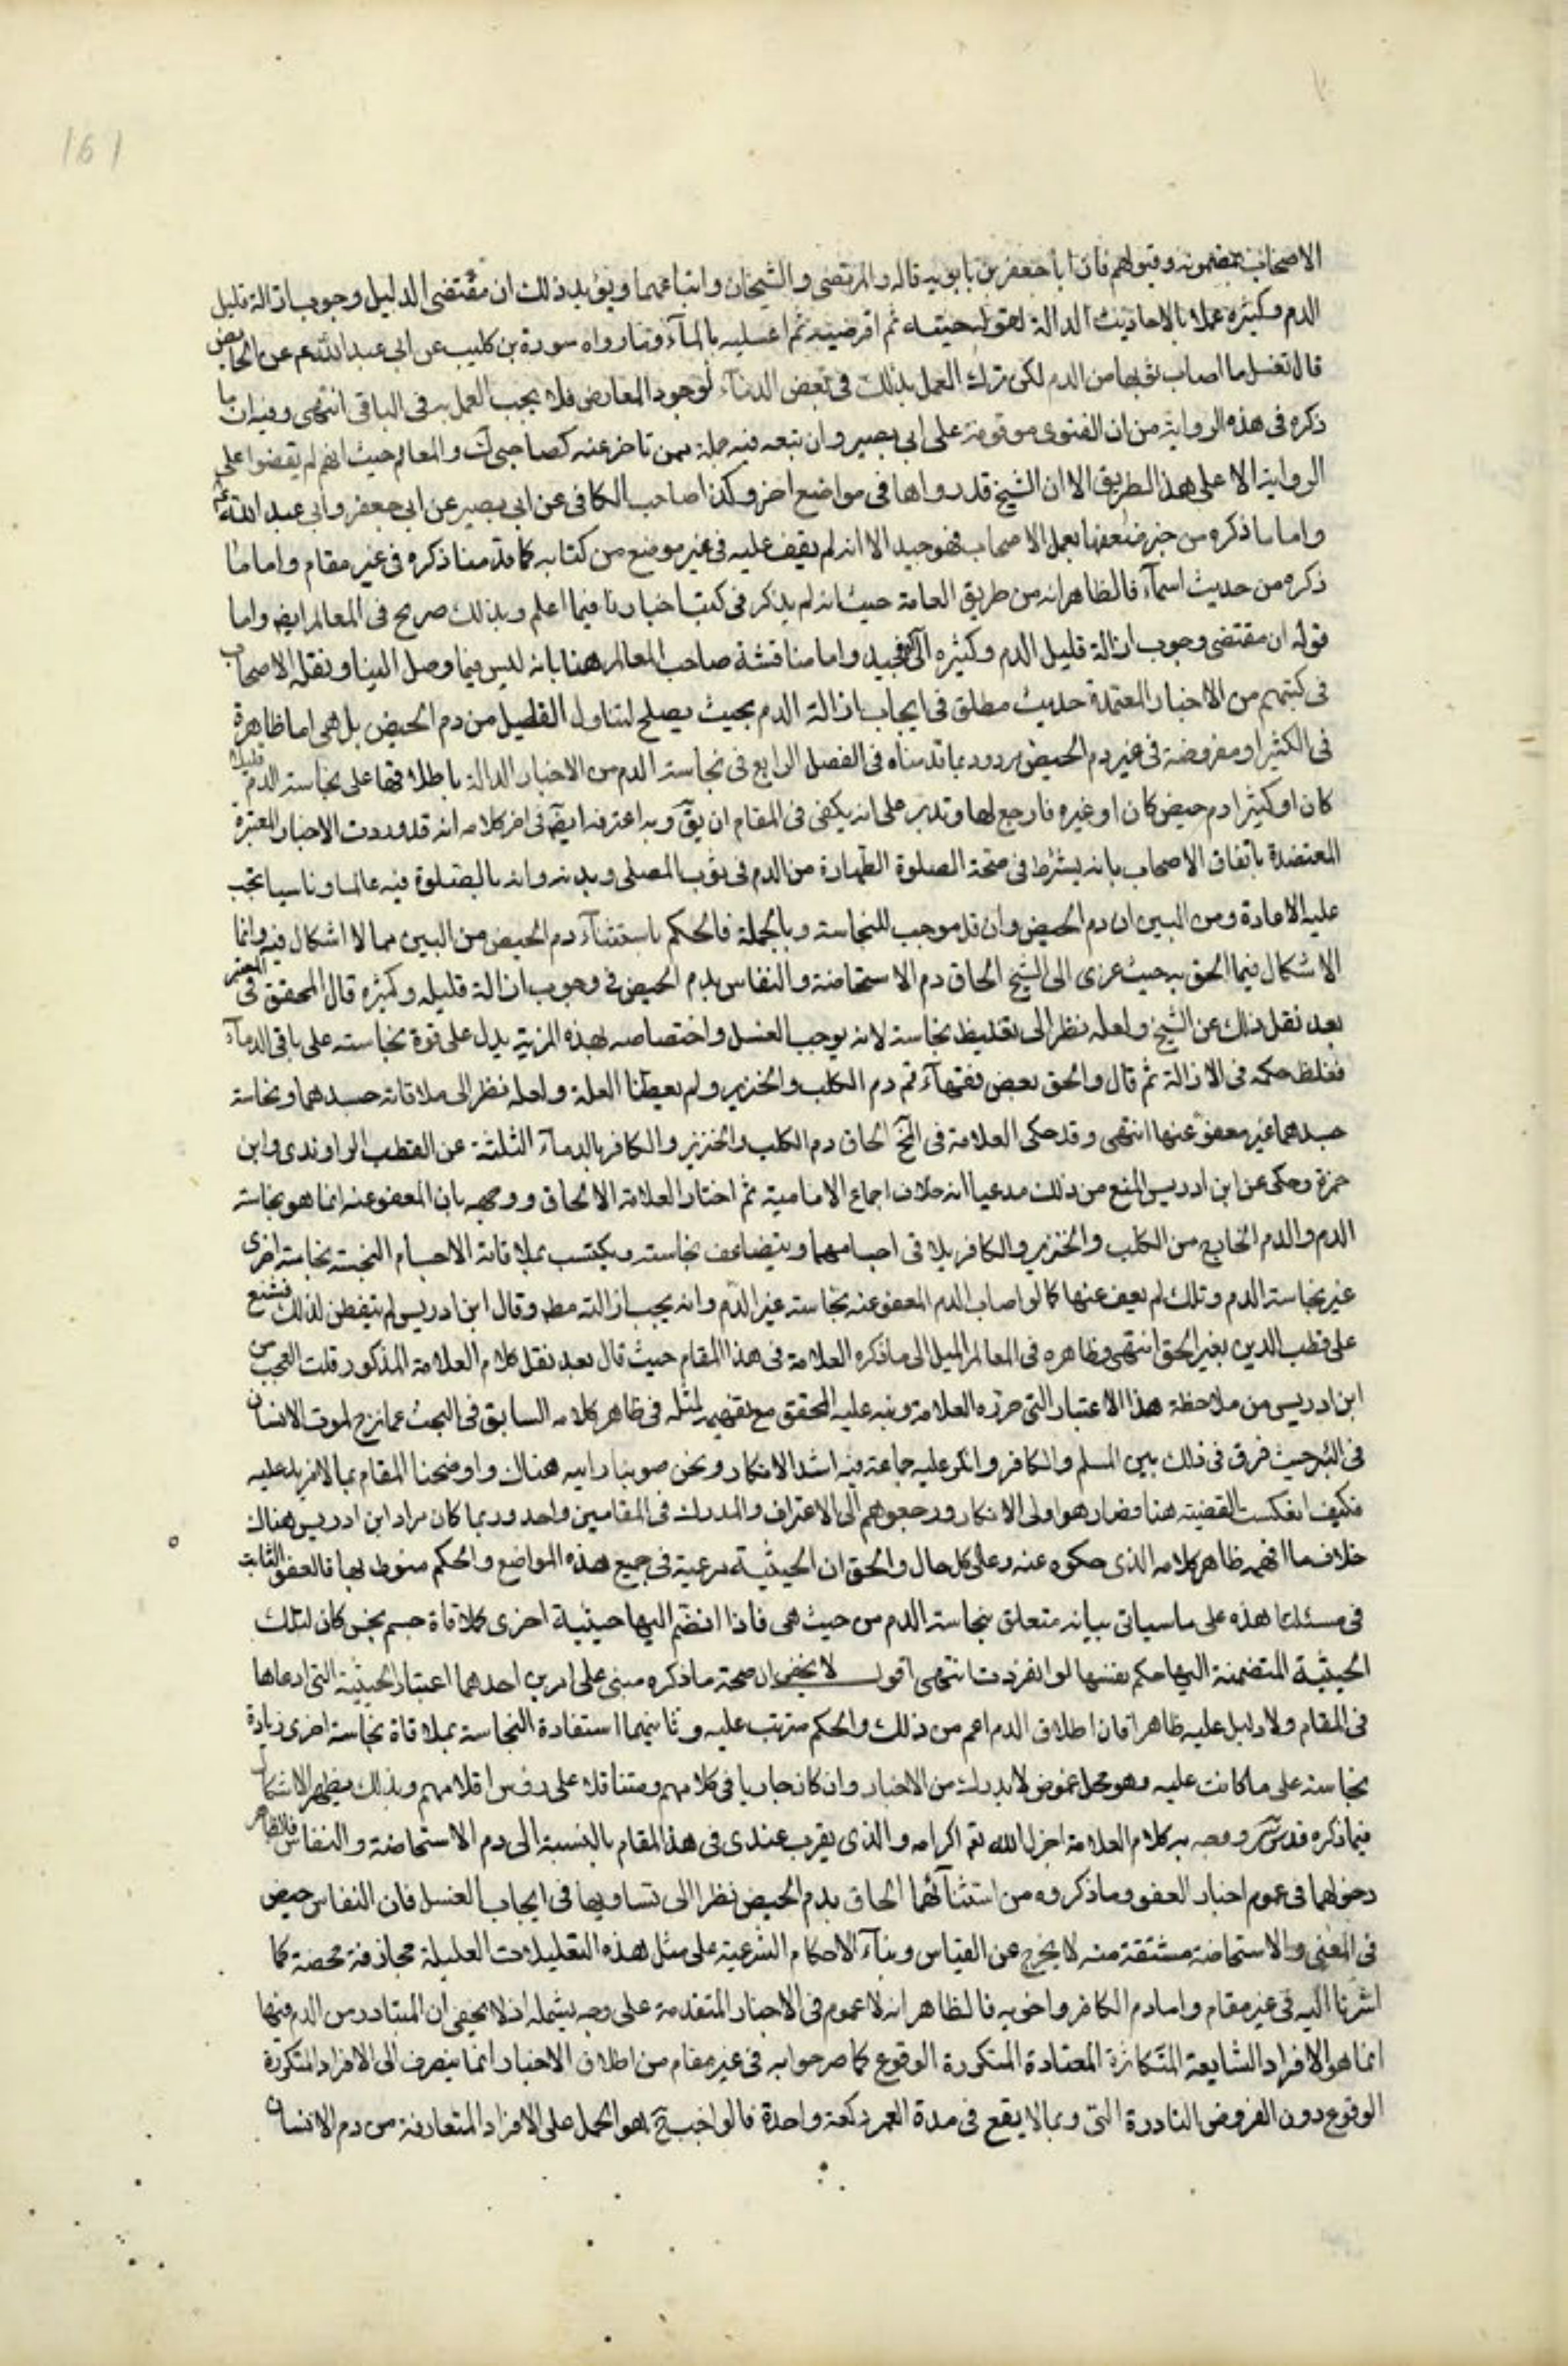 161
الاصحاب بمضمونه وقبولهم فان ابا جعفر بن بابويه قاله والمرتضى والشيخان واتباعهما ويؤيد ذلك ان مقتضى الدليل وجوب ازالة قليل
الدم وكثيره عملا بالاحاديث الدالة لقوله حتيه ثم اقرضيه ثم اغسليه بالماء وما رواه سورة بن كليب عن ابي عبد الله ع عن الحايض
قال تغسل ما اصاب ثوبها من الدم لكن ترك العمل بذلك في بعض الدماء لوجود المعارض فلا يجب العمل به في الباقي انتهى وفيه ان ما
ذكره في هذه الرواية من ان الفتوى موقوفة على ابي بصير وان تبعه فيه جملة ممن تاخر عنه كصاحبي ك والمعالم حيث انهم لم يقفوا على
الرواية الا على هذا الطريق الا ان الشيخ قد رواها في مواضع اخر وكذا صاحب الكافي عن ابي بصير عن ابي جعفر وابي عبد الله ع
واما ما ذكره من جبر ضعفها بعمل الاصحاب فهو جيد الا انه لم يقف عليه في غير موضع من كتابه كما قدمنا ذكره في غير مقام واما ما
ذكره من حديث اسماء فالظاهر انه من طريق العامة حيث انه لم يذكر في كتب اخبارنا فيما اعلم وبذلك صريح في المعالم ايض واما
قوله ان مقتضى وجوب ازالة قليل الدم وكثيره الخ فجيد واما مناقشة صاحب المعالم هنا بانه ليس فيما وصل الينا ونقله الاصحاب
في كتبهم من الاخبار المعتمدة حديث مطلق في ايجاب ازالة الدم بحيث يصلح لتناول القليل من دم الحيض بل هي اما ظاهرة
في الكثير او مفروضة في غير دم الحيض مردود بما قدمناه في الفصل الرابع في نجاسة الدم من الاخبار الدالة باطلاقها على نجاسة الدم قليلا
كان او كثيرا دم حيض كان او غيره فارجع لها وتدبر على انه يكفي في المقام ان يق وبه اعترف ايضا في اخر كلامه انه قد وردت الاخبار المعتبرة
المعتضدة باتفاق الاصحاب بانه يشترط في صحة الصلوة الطهارة من الدم في ثوب المصلي وبدنه وانه بالصلوة فيه عالما وناسيا يجب
عليه الاعادة ومن البين ان دم الحيض وان قل موجب للنجاسة وبالجملة فالحكم باستثناء دم الحيض من البين مما لا اشكال فيه وانما
الاشكال فيما الحق به حيث عزى الى الشيخ الحاق دم الاستحاضة والنفاس بدم الحيض في وجوب ازالة قليله وكثيره قال المحقق في المعتبر
بعد نقل ذلك عن الشيخ ولعله نظر الى تغليظ نجاسة لانه يوجب الغسل واختصاصه بهذه المزية يدل على قوة نجاسته على باقي الدماء
فغلظ حكمه في الازالة ثم قال والحق بعض فقهاء قم دم الكلب والخنزير ولم يعطنا العلة ولعله نظر الى ملاقاته جسدهما ونجاسة
جسدهما غير معفو عنها انتهى وقد حكى العلامة في المخ الحاق دم الكلب والخنزير والكافر بالدماء الثلثة عن القطب الراوندي وابن
حمزة وحكى عن ابن ادريس المنع من ذلك مدعيا انه خلاف اجماع الامامية ثم اختار العلامة الالحاق ووجهه بان المعفو عنه انما هو نجاسة
الدم والدم الخارج من الكلب والخنزير والكافر يلاقي اجسامهما ويتضاعف نجاسته ويكتسب بملاقاة الاجسام النجسة نجاسة اخرى
غير نجاسة الدم وتلك لم يعف عنها كما لو اصاب الدم المعفو عنه نجاسة غير الدم وانه يجب ازالته مط وقال ابن ادريس لم يتفطن لذلك فشنع
على قطب الدين بغير الحق انتهى وظاهره في المعالم الميل الى ما ذكره العلامة في هذا المقام حيث قال بعد نقل كلام العلامة المذكور قلت العجب من
ابن ادريس من ملاحظة هذا الاعتبار التي حرزه العلامة ونبه عليه المحقق مع تفهيمه لمثله في ظاهر كلامه السابق في البحث عما نزح لموت الانسان
في البئر حيث فرق في ذلك بين المسلم والكافر وانكر عليه جماعة فيه اشد الانكار ونحن صوبنا رايه هناك واوضحنا المقام بما لا مزيد عليه
فكيف انعكست القضية هنا فصار هو اولى الانكار ورجعوا هم الى الاعتراف والمدرك في المقامين واحد وربما كان مراد ابن ادريس هناك
خلاف ما افهمه ظاهر كلامه الذي حكوه عنه وعلى كل حال والحق ان الحيثية مرعية في جميع هذه المواضع والحكم منوط بها فالعفو الثابت
في مسئلتنا هذه على ما سياتي بيانه متعلق بنجاسة الدم من حيث هي فاذا انضم اليها حيثية اخرى كملاقاة جسم نجس كان لتلك
الحيثية المتضمنة اليها حكم نفسها لو انفردت انتهى اقول لا يخفى ان صحة ما ذكره مبنى على امرين احدهما اعتبار الحيثية التي ادعاها
في المقام ولا دليل عليه ظاهرا فان اطلاق الدم اعم من ذلك والحكم مترتب عليه وثانيهما استفادة النجاسة بملاقاة نجاسة اخرى زيادة
نجاسة على ما كانت عليه وهو محل غموض لا يدرك من الاخبار وان كان جاريا في كلامهم ومتناقلا على رؤس اقلامهم وبذلك يظهر الاشكال
فيما ذكره قدس سره ووجه به كلام العلامة اجزل الله تع اكرامه والذي يقرب عندي في هذا المقام بالنسبة الى دم الاستحاضة والنفاس فالظاهر
دخولهما في عموم اخبار العفو وما ذكروه من استثنائهما الحاق بدم الحيض نظرا الى تساويها في ايجاب الغسل فان النفاس حيض
في المعنى والاستحاضة مشتقة منه لا يخرج عن القياس وبناء الاحكام الشرعية على مثل هذه التعليلات العليلة مجازفة محضة كما
اشرنا اليه في غير مقام واما دم الكافر واخويه فالظاهر انه لا عموم في الاخبار المتقدمة على وجه يشمله اذ لا يخفى ان المتبادر من الدم فيها
انما هو الافراد الشايعة المتكاثرة المعتادة المتكررة الوقوع كما صرحوا به في غير مقام من اطلاق الاخبار انما ينصرف الى الافراد المتكررة
الوقوع دون الفروض النادرة التي وبما لا يقع في مدة العمر دفعة واحدة فالواجب ح هو الحمل على الافراد المتعارفة من دم الانسان